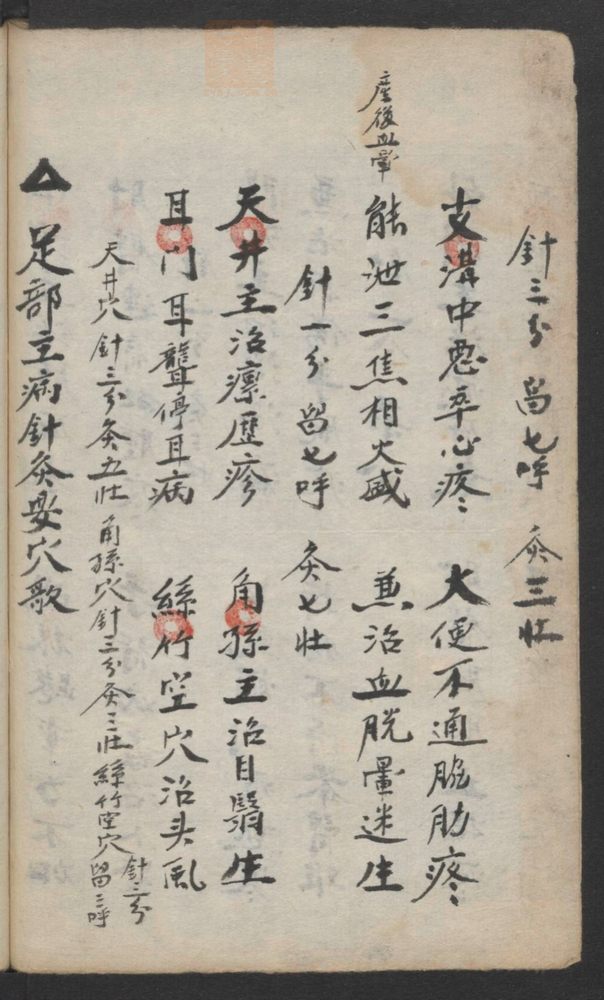 針三分 留七呼 灸三壯
支溝中惡卒心疼 大便不通脇肋疼
產後血暈
能泄三焦相火盛 兼治血脱暈迷生
針一分 留七呼 灸七壯
天井主治瘰歷疹 角孫主治目翳生
耳门耳聾停耳病 絲竹空穴治头風
天井穴針三分灸五壯 角孫穴針三分灸三壯 絲竹空穴針三分留三呼
▲足部主病針灸要穴歌